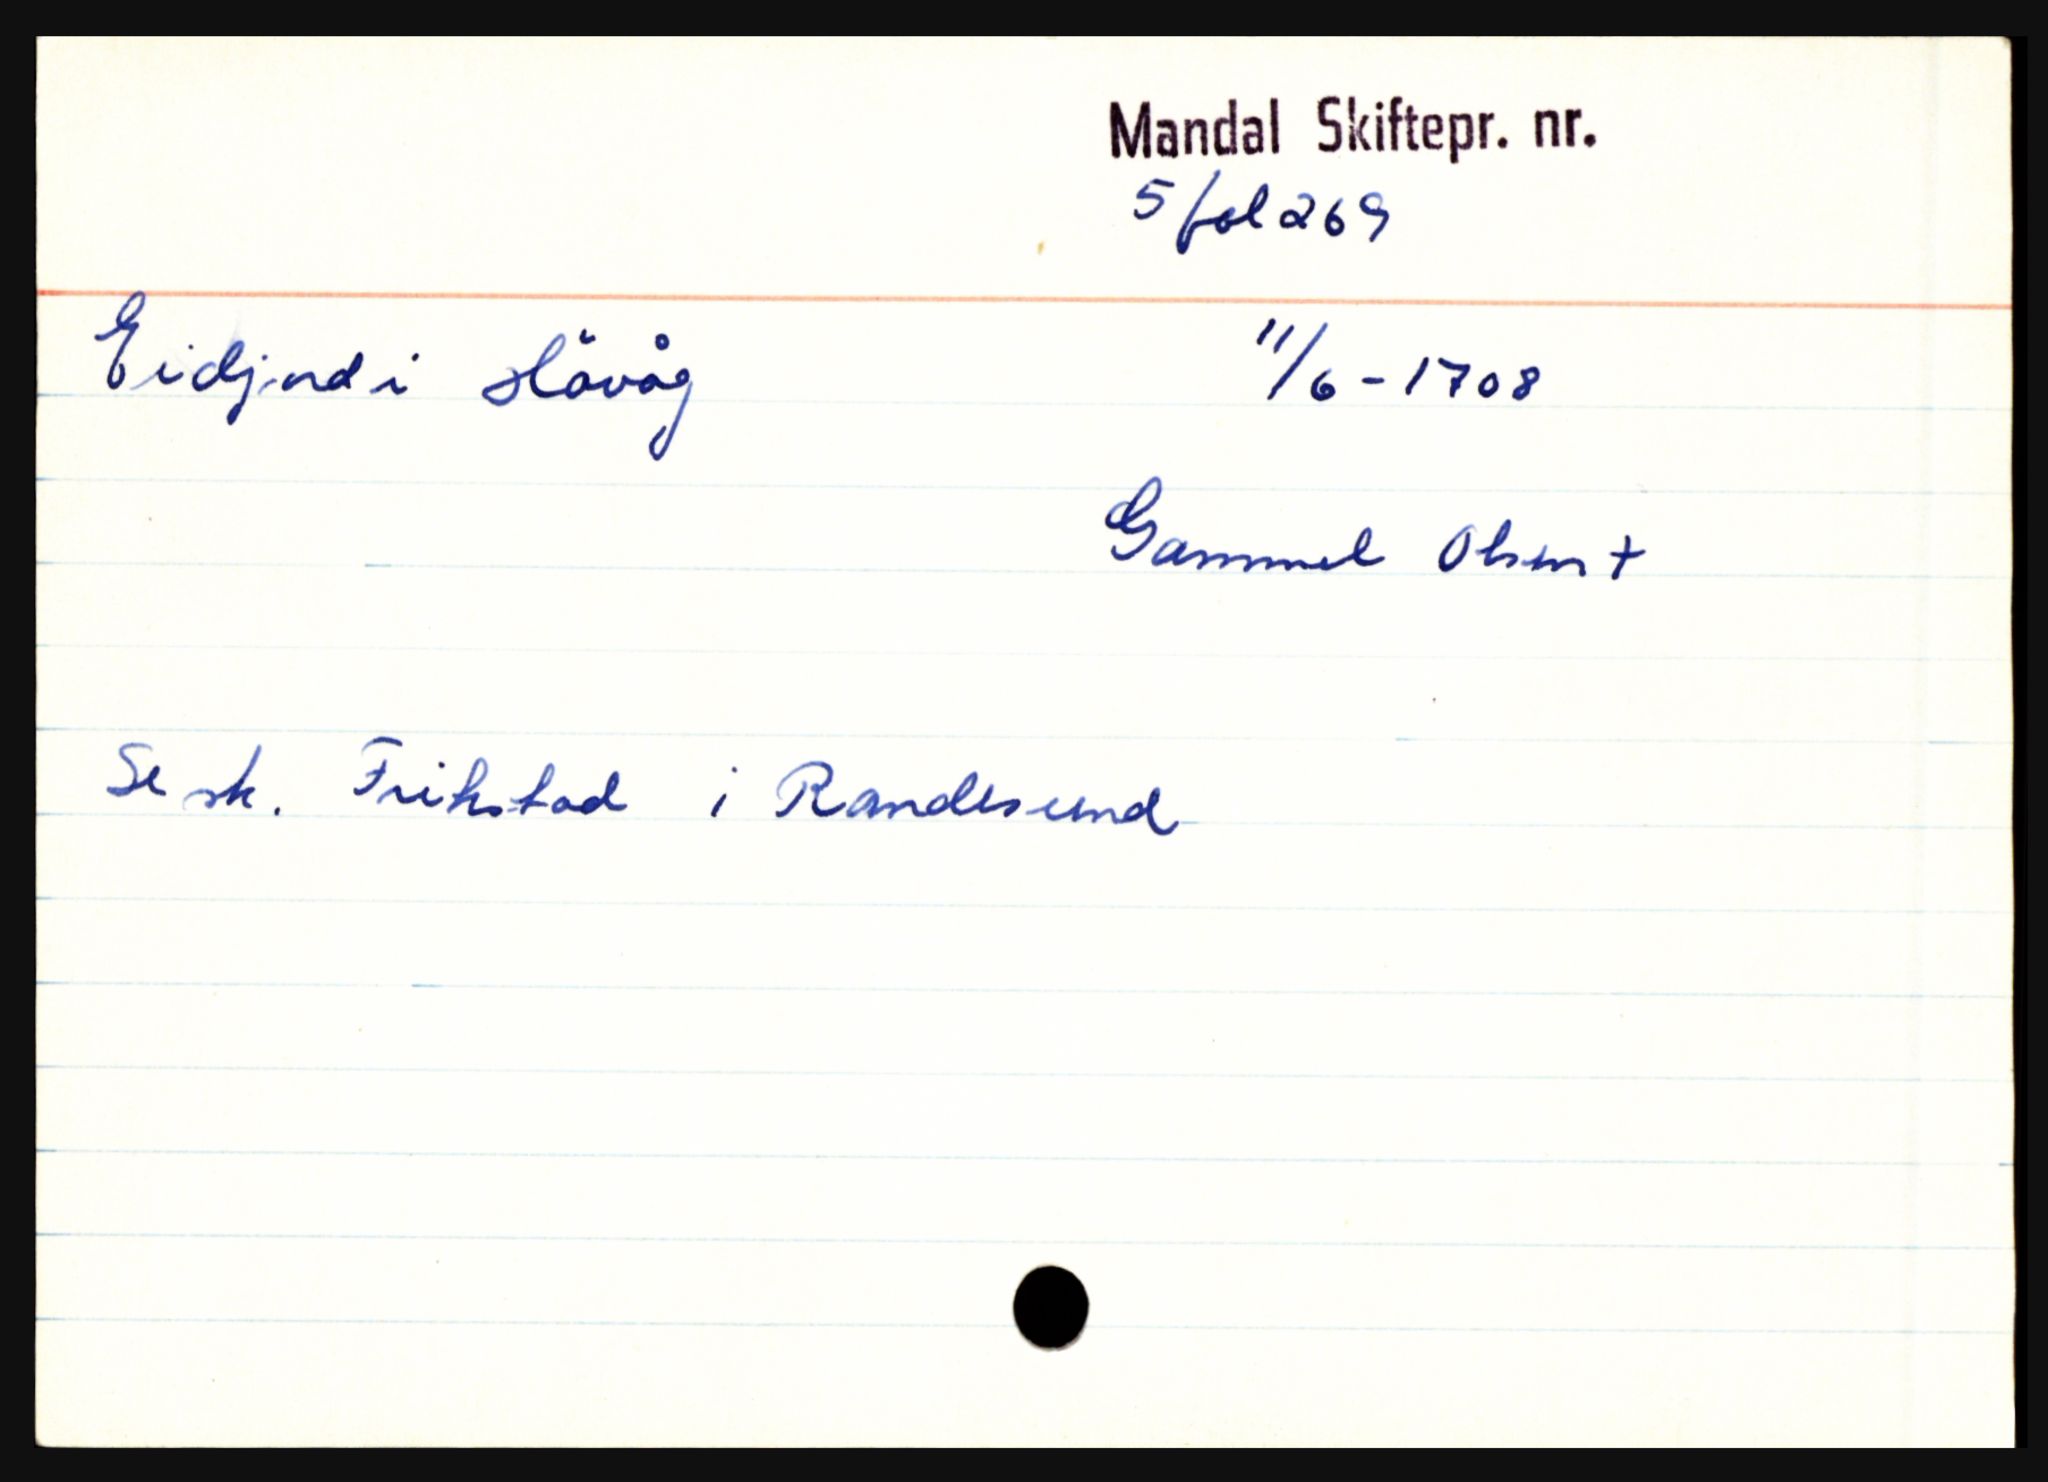 Mandal Skiftepr. nr.
5 fol 269
Eidjord i Hövåg 11/6-1708
Gammel Olsen +
Se sk. Frikstad i Randesund